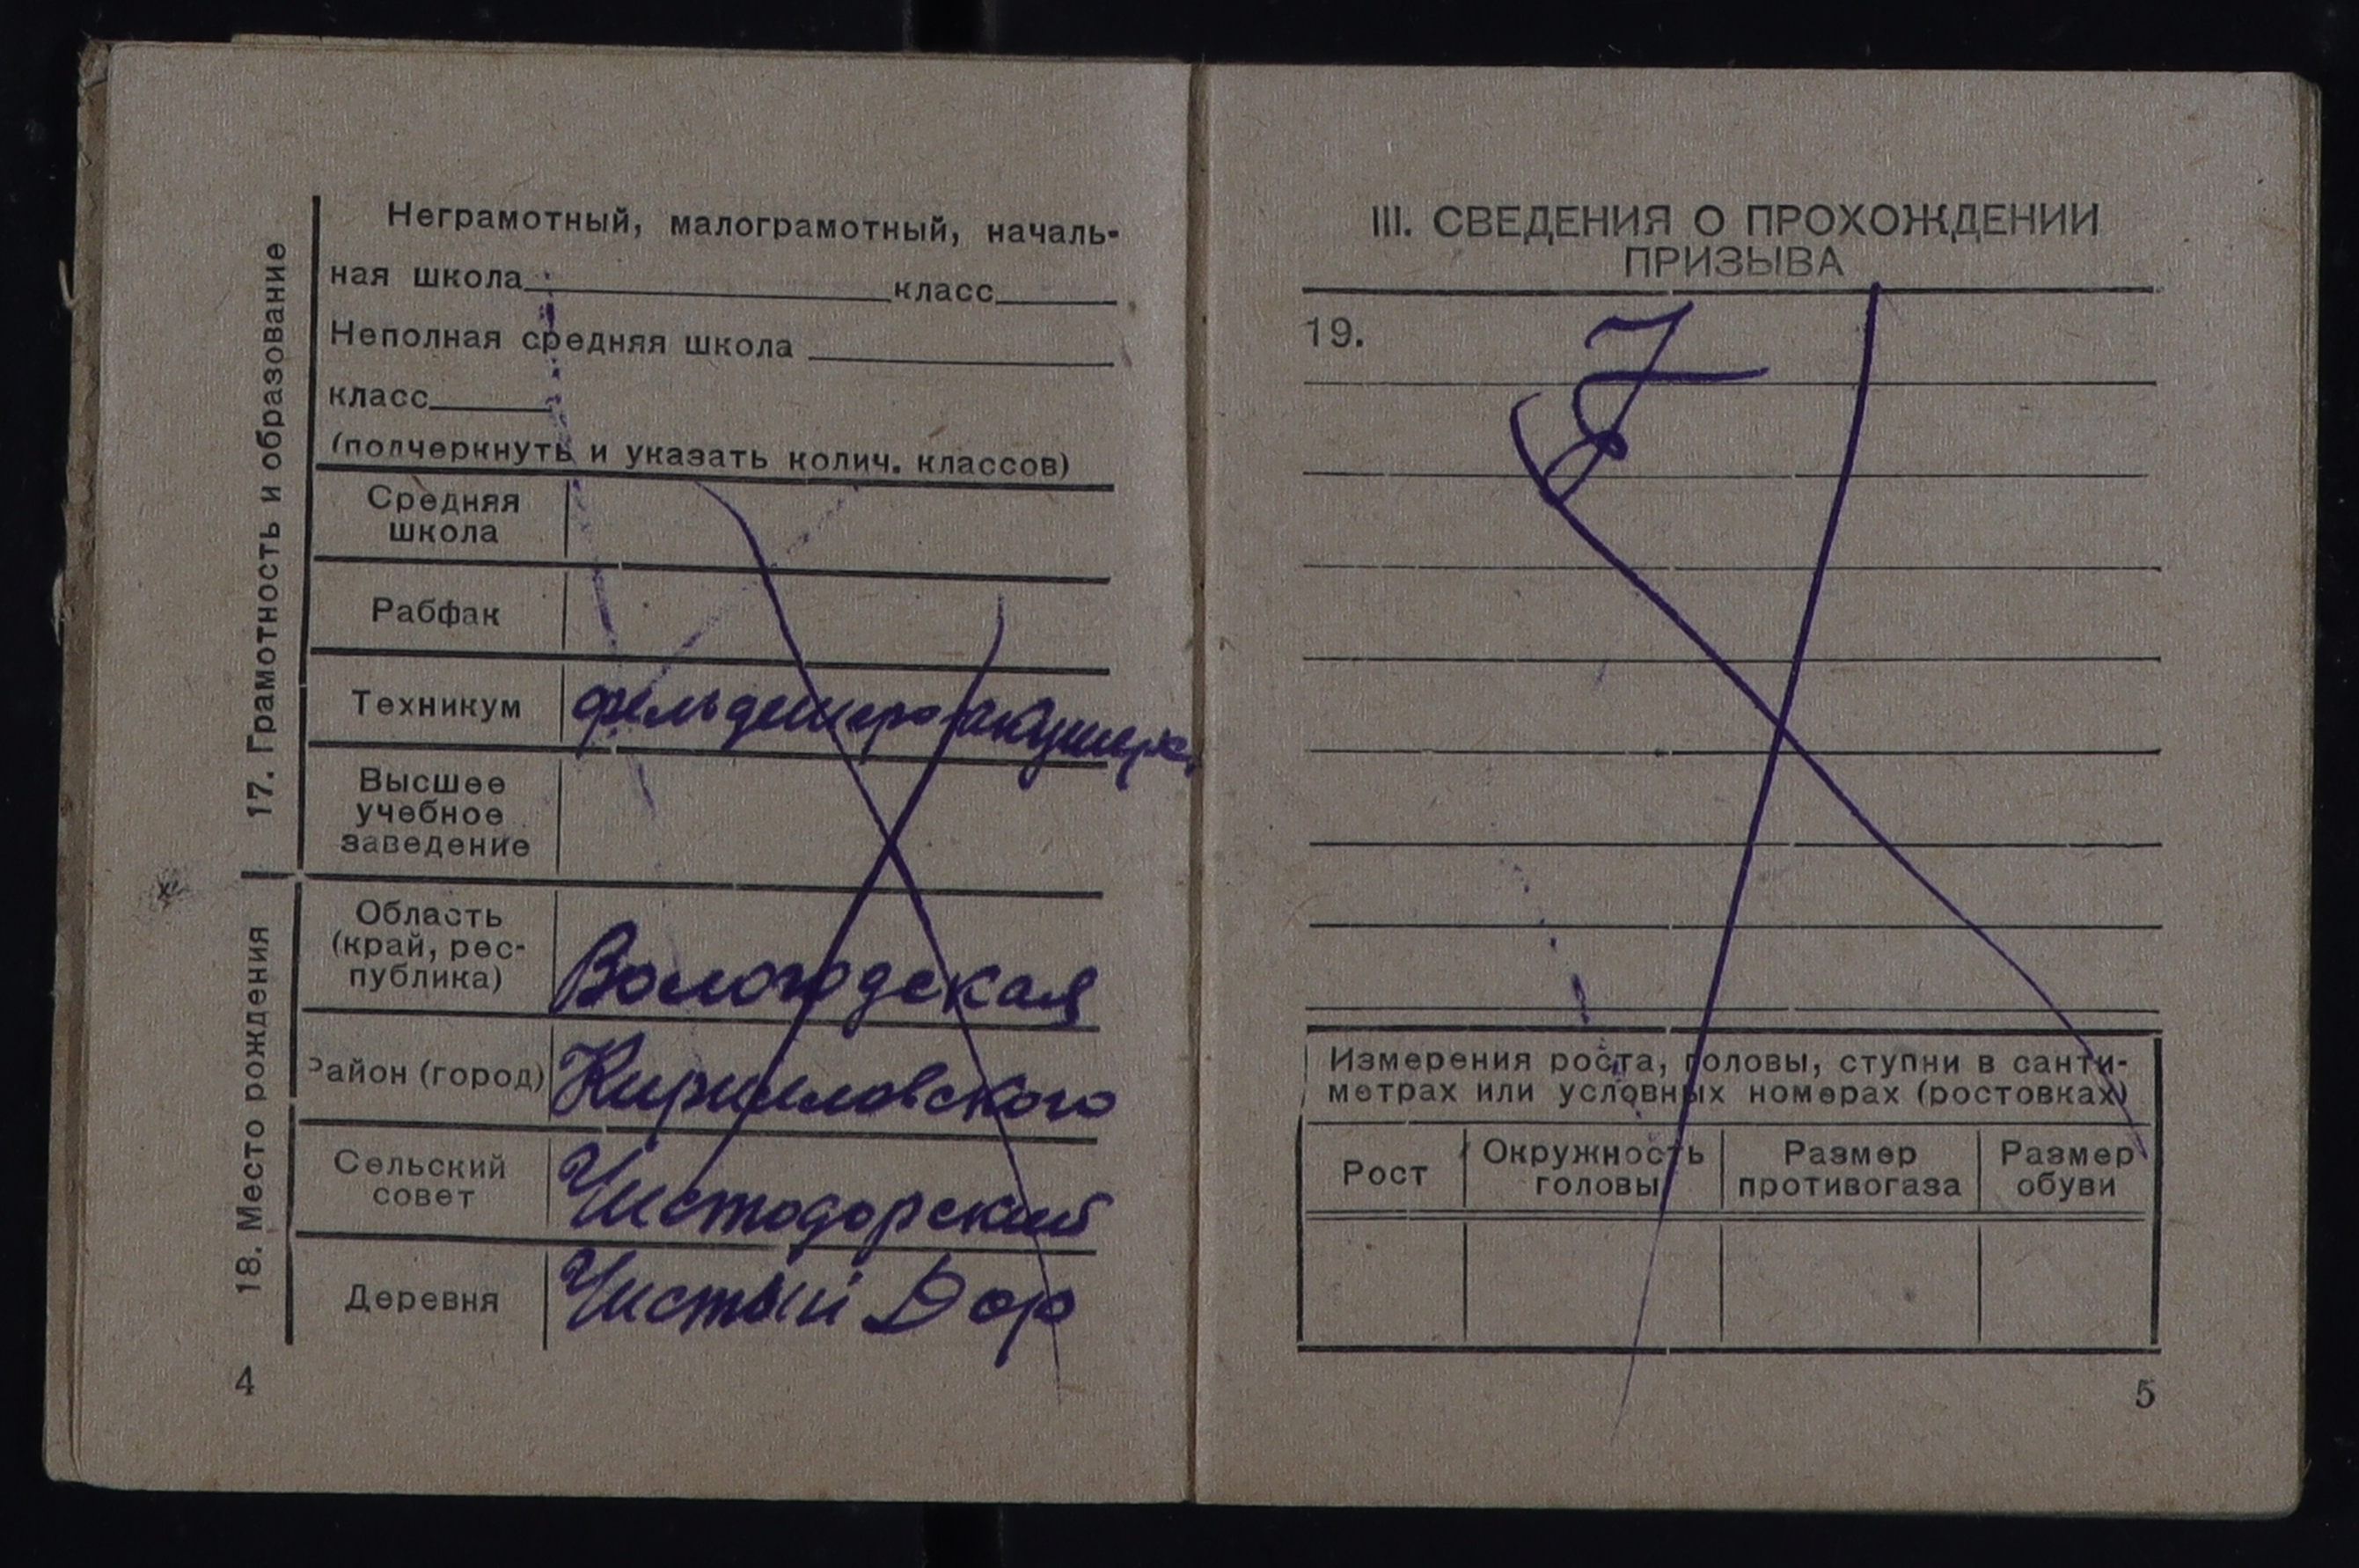 17. Грамотность и образование
Неграмотный, малограмотный, началь-
ная школа класс
Неполная средняя школа
класс
(подчеркнуть и указать колич. классов)
Средняя
школа
Рабфак
Техникум фельдшеро-акушерс.
Высшее
учебное
заведение
18. Место рождения
Область
(край, рес-
публика) Вологодская
Район (город) Кирилловского
Сельский
совет Чистодорский
Деревня Чистый Дор
4
III. СВЕДЕНИЯ О ПРОХОЖДЕНИИ
ПРИЗЫВА
19.
Измерения роста, головы, ступни в санти-
метрах или условных номерах (ростовках)
Рост
Окружность
головы
Размер
противогаза
Размер
обуви
5